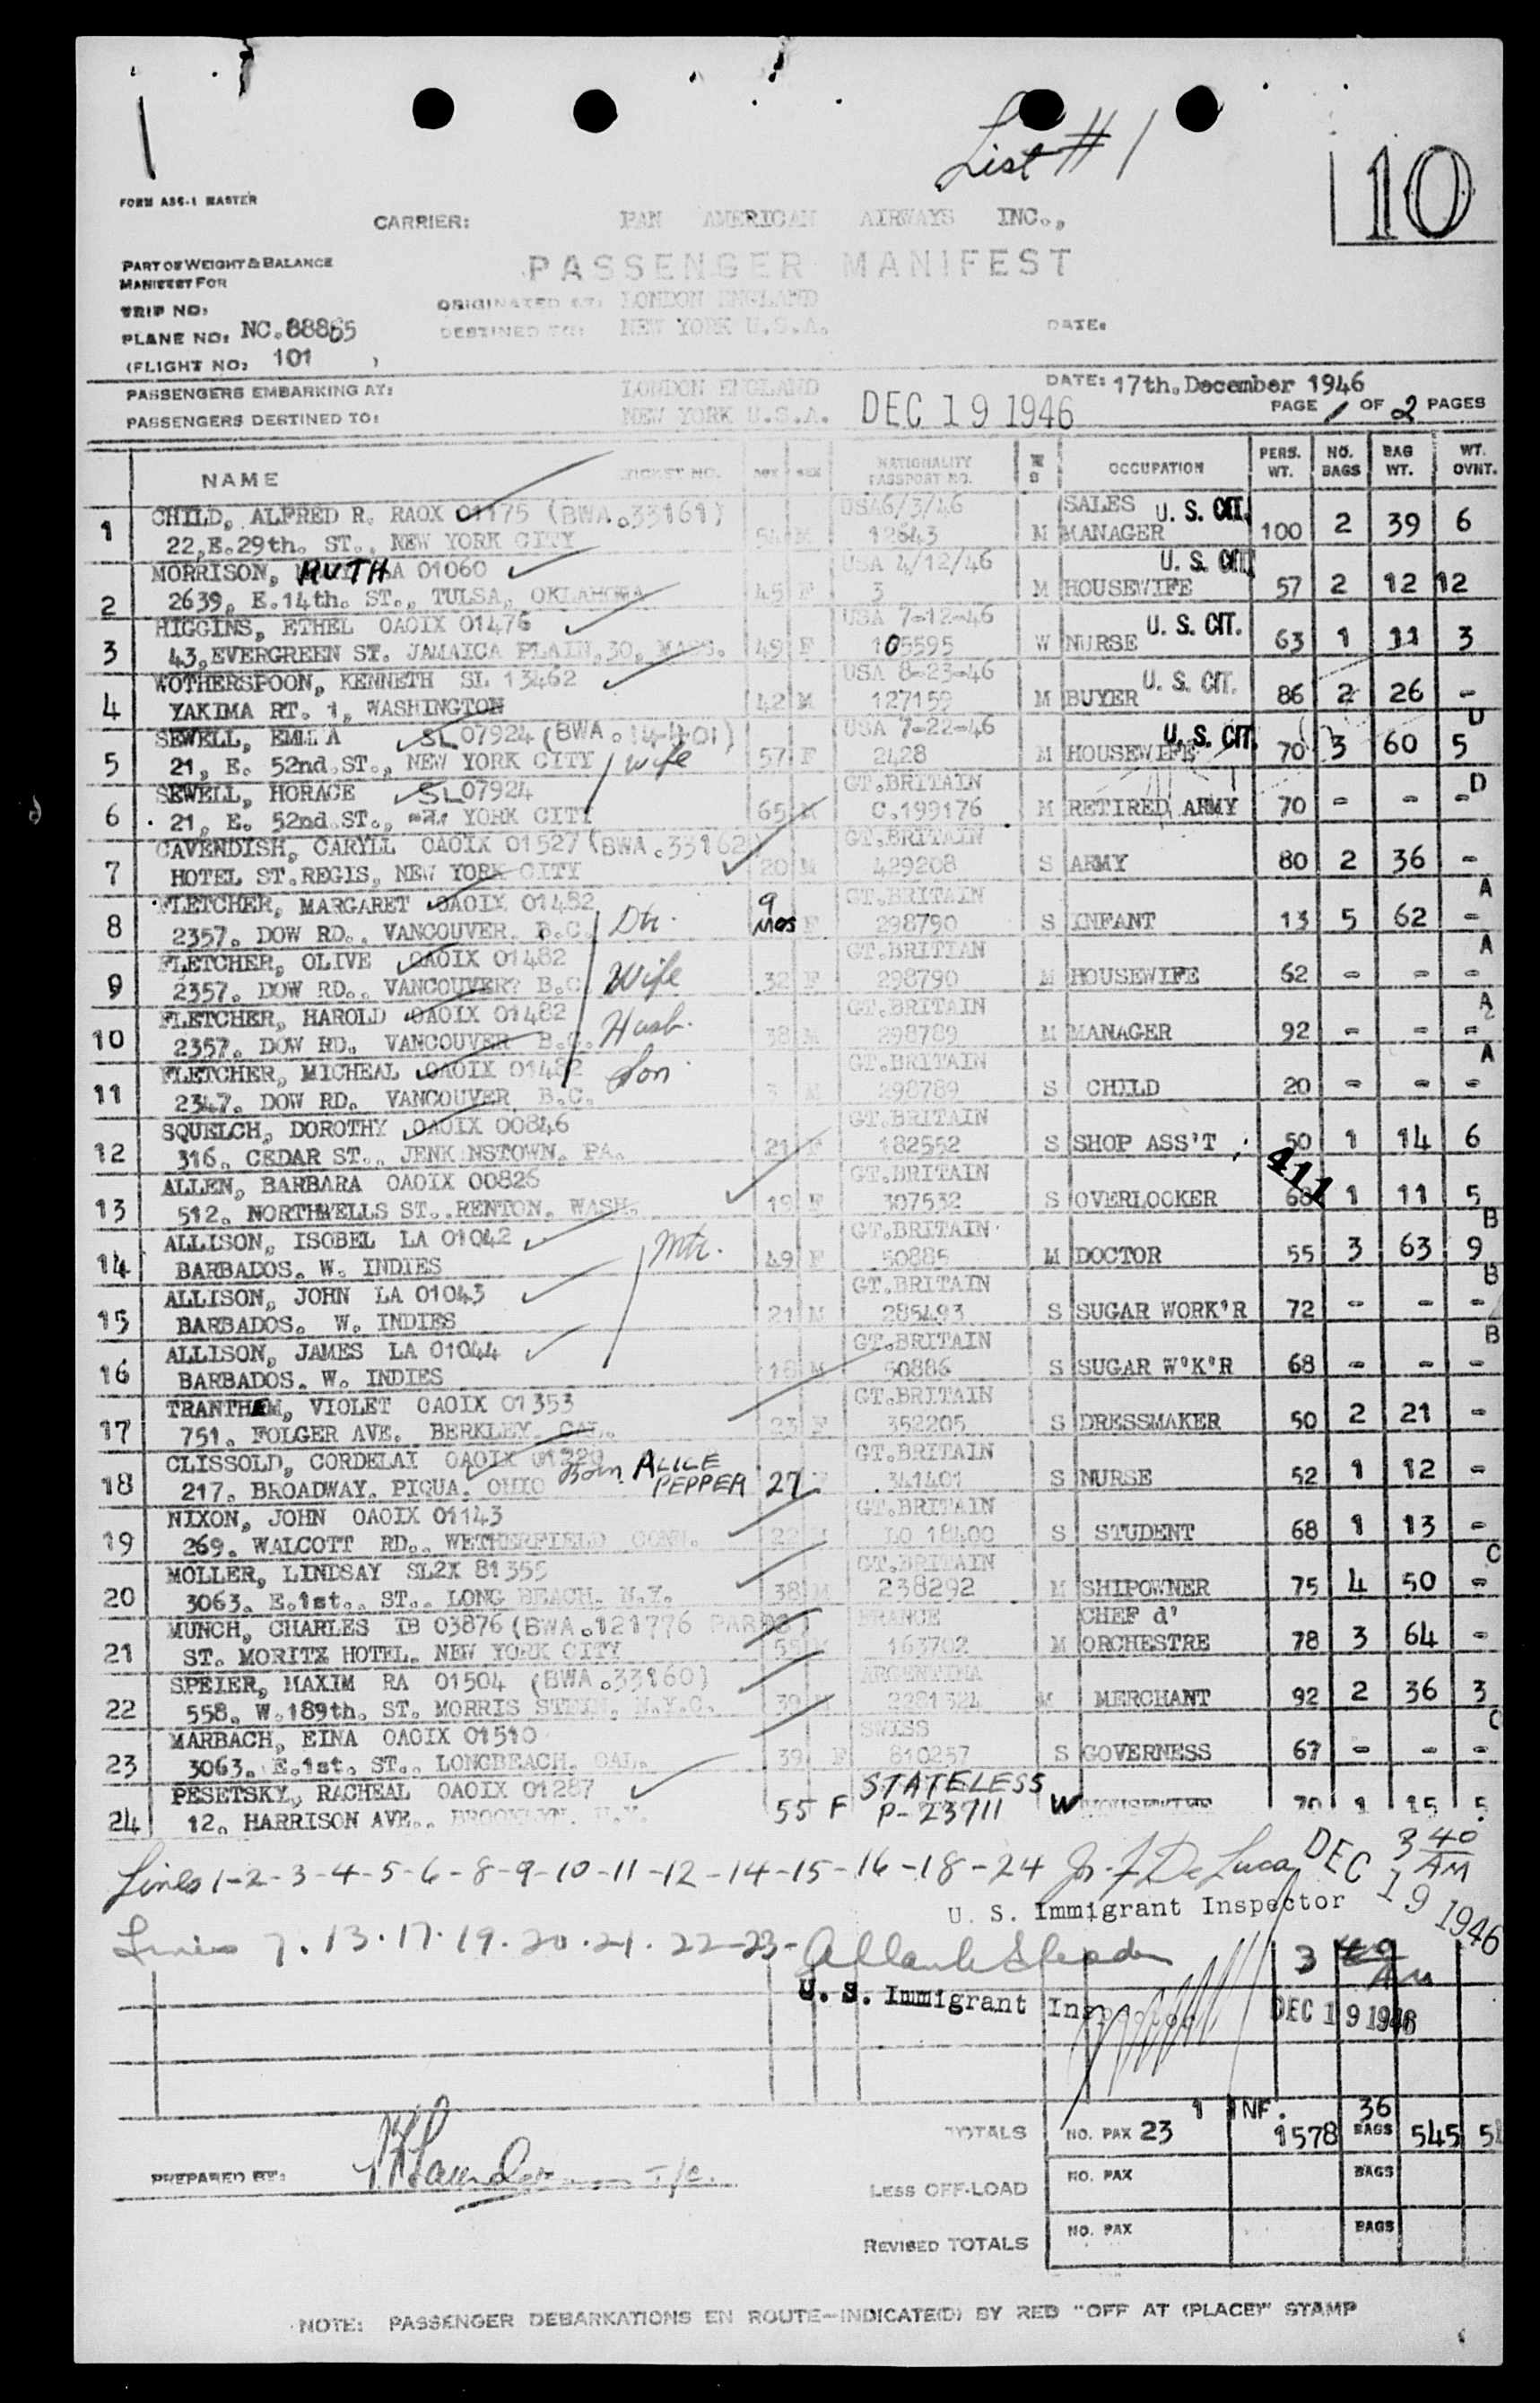 List # 1
10
FORM ASS-1 MASTER
CARRIER: PAN AMERICAN AIRWAYS INC.,
PASSENGER MANIFEST
PART OF WEIGHT & BALANCE
MANIFEST FOR
TRIP NO:
ORIGINATED AT: LONDON ENGLAND
PLANE NO: NC.88865
DESTINED TO: NEW YORK U.S.A.
DATE:
(FLIGHT NO: 101 )
PASSENGERS EMBARKING AT: LONDON ENGLAND
DATE: 17th. December 1946
PASSENGERS DESTINED TO: NEW YORK U.S.A. DEC 19 1946
PAGE 1 OF 2 PAGES
NAME TICKET NO. AGE SEX NATIONALITY PASSPORT NO. OCCUPATION PERS. WT. NO. BAGS BAG WT. WT. OVNT.
CHILD, ALFRED R. RAOX 01175 (BWA.33161) USA6/3/46 SALES U. S. CIT.
1 22,E.29th. ST., NEW YORK CITY 54 M 12643 M MANAGER 100 2 39 6
MORRISON, RUTH LA 01060 USA 4/12/46 U. S. CIT.
2 2639, E.14th. ST., TULSA, OKLAHOMA 45 F 3 M HOUSEWIFE 57 2 12 12
HIGGINS, ETHEL OAOIX 01476 USA 7-12-46 U. S. CIT.
3 43,EVERGREEN ST. JAMAICA PLAIN,30, MASS. 49 F 105595 W NURSE 63 1 11 3
WOTHERSPOON, KENNETH SL 13462 USA 8-23-46 U. S. CIT.
4 YAKIMA RT. 1, WASHINGTON 42 M 127159 M BUYER 86 2 26 -
SEWELL, EMMA SL07924 (BWA.14401) USA 7-22-46 U. S. CIT. D
5 21, E. 52nd.ST., NEW YORK CITY wife 57 F 2428 M HOUSEWIFE 70 3 60 5
SEWELL, HORACE SL07924 GT.BRITAIN D
6 21, E. 52nd.ST., YORK CITY 65 M C.199176 M RETIRED ARMY 70 - - -
CAVENDISH, CARYLL OAOIX 01527 (BWA.33162) GT.BRITAIN
7 HOTEL ST.REGIS, NEW YORK CITY 20 M 429208 S ARMY 80 2 36 -
FLETCHER, MARGARET OAOIX 01482 9 GT.BRITAIN A
8 2357. DOW RD., VANCOUVER. B.C. Dtr. Mos F 298790 S INFANT 13 5 62 -
FLETCHER, OLIVE OAOIX 01482 GT.BRITIAN A
9 2357. DOW RD., VANCOUVER? B.C. Wife 32 F 298790 M HOUSEWIFE 62 - - -
FLETCHER, HAROLD OAOIX 01482 GT.BRITAIN A
10 2357. DOW RD. VANCOUVER B.C. Husb. 38 M 298789 M MANAGER 92 - - -
FLETCHER, MICHEAL OAOIX 01482 GT.BRITAIN A
11 2347. DOW RD. VANCOUVER B.C. Son 3 M 298789 S CHILD 20 - - -
SQUELCH, DOROTHY OAOIX 00846 GT.BRITAIN
12 316. CEDAR ST., JENK NSTOWN. PA. 21 F 182552 S SHOP ASS'T 50 1 14 6
411
ALLEN, BARBARA OAOIX 00826 GT.BRITAIN
13 512. NORTHWELLS ST..RENTON. WASH. 19 F 307532 S OVERLOOKER 68 1 11 5
ALLISON, ISOBEL LA 01042 GT.BRITAIN B
14 BARBADOS. W. INDIES Mtr. 49 F 50885 M DOCTOR 55 3 63 9
ALLISON, JOHN LA 01043 GT.BRITAIN B
15 BARBADOS. W. INDIES 21 M 285493 S SUGAR WORK'R 72 - - -
ALLISON, JAMES LA 01044 GT.BRITAIN B
16 BARBADOS. W. INDIES 18 M 50886 S SUGAR W'K'R 68 - - -
TRANTHAM, VIOLET OAOIX 01353 GT.BRITAIN
17 751. FOLGER AVE. BERKLEY. CAL. 23 F 352205 S DRESSMAKER 50 2 21 -
CLISSOLD, CORDELAI OAOIX 01220 Born ALICE GT.BRITAIN
18 217. BROADWAY. PIQUA. OHIO PEPPER 27 F 341401 S NURSE 52 1 12 -
NIXON, JOHN OAOIX 01143 GT.BRITAIN
19 269. WALCOTT RD.. WETHERFIELD CONN. 22 M LO 18400 S STUDENT 68 1 13 -
MOLLER, LINDSAY SL2X 81355 GT.BRITAIN C
20 3063. E.1st.. ST.. LONG BEACH. N.Y. 38 M 238292 M SHIPOWNER 75 4 50 -
MUNCH, CHARLES IB 03876 (BWA.121776 PARIS) FRANCE CHEF d'
21 ST. MORITZ HOTEL. NEW YORK CITY 55 M 163702 M ORCHESTRE 78 3 64 -
SPEIER, MAXIM RA 01504 (BWA.33160) ARGENTINA
22 558. W.189th. ST. MORRIS STEIN. N.Y.C. 39 M 2281324 M MERCHANT 92 2 36 3
MARBACH, EINA OAOIX 01510 SWISS C
23 3063. E.1st. ST.. LONGBEACH. CAL. 39 F 810257 S GOVERNESS 67 - - -
PESETSKY, RACHEAL OAOIX 01287 STATELESS
24 12. HARRISON AVE.. BROOKLYN. N.Y. 55 F P-23711 W HOUSEWIFE 70 1 15 5
Lines 1-2-3-4-5-6-8-9-10-11-12-14-15-16-18-24 Jn. F De Luca DEC 19 1946 3 40 AM
U. S. Immigrant Inspector
Lines 7.13.17.19.20.21.22-23-
3 40 AM
U. S. Immigrant Inspector DEC 19 1946
1 INF. 36
TOTALS NO. PAX 23 1578 BAGS 545
PREPARED BY:
LESS OFF-LOAD NO. PAX BAGS
REVISED TOTALS NO. PAX BAGS
NOTE: PASSENGER DEBARKATIONS EN ROUTE-INDICATE(D) BY RED "OFF AT (PLACE)" STAMP